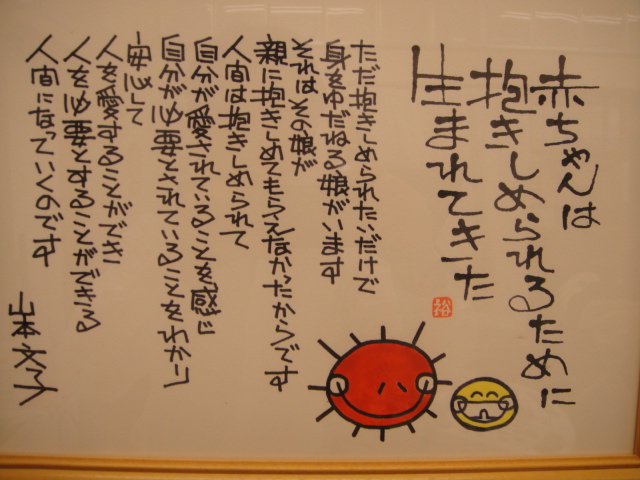 赤ちゃんは
抱きしめられるために
生まれてきた
ただ抱きしめられたいだけで
身をゆだねる娘がいます
それはその娘が
親に抱きしめてもらえなかったからです
人間は抱きしめられて
自分が愛されていることを感じ
自分が必要とされていることをわかり
安心して
人を愛することができ
人を必要とすることができる
人間になっていくのです
山本文子